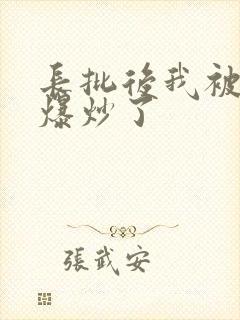 長批後我被
爆炒了
張武安